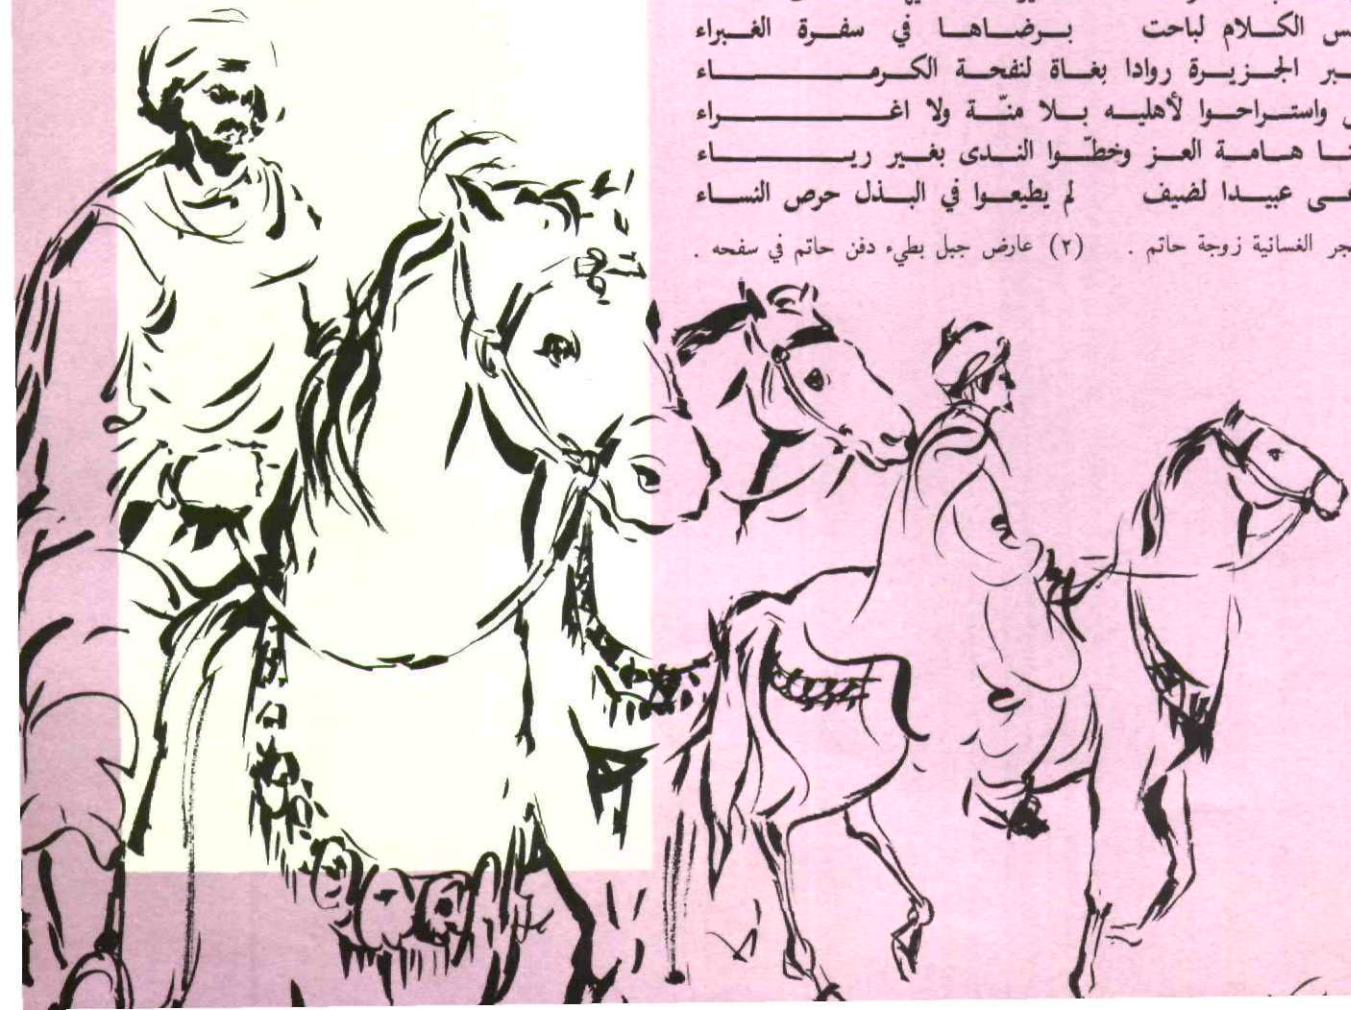 الكلام لباحت برضاها في سفرة الغبراء
الجزيرة روادا بغاة لنفحة الكرماء
واستراحوا لأهليه بلا منّة ولا اغراء
هامة العز وخطّوا الندى بغير رياء
عبيدا لضيف لم يطيعوا في البذل حرص النساء
الغسانية زوجة حاتم . (٢) عارض جبل بطيء دفن حاتم في سفحه .